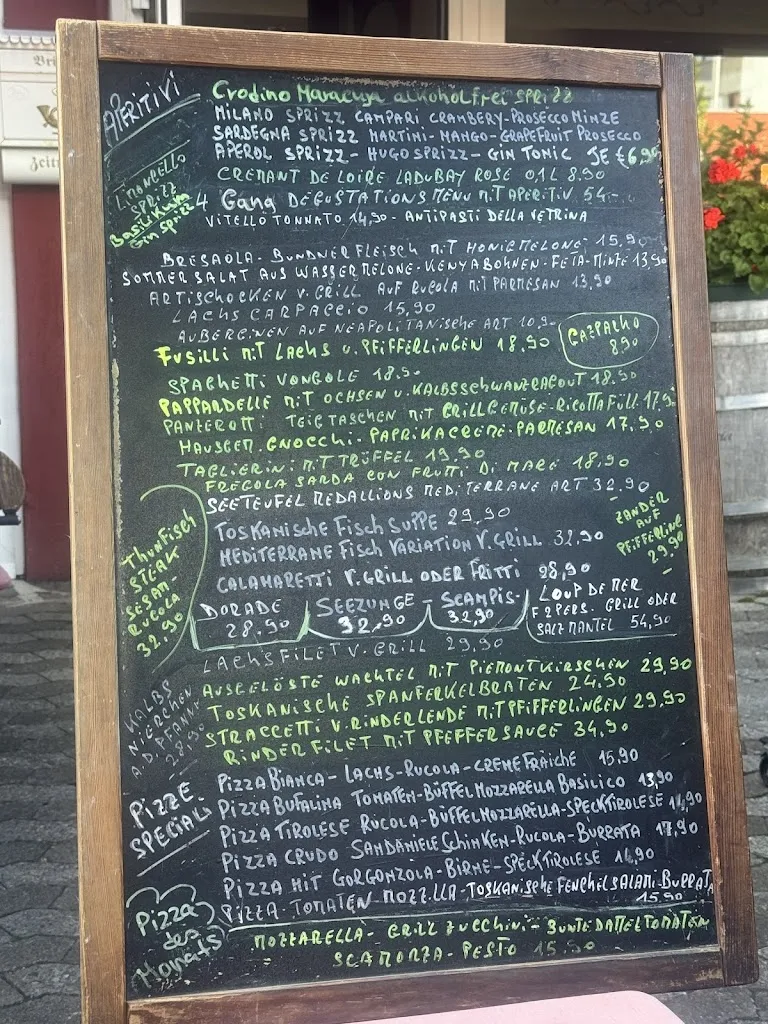 APERITIVI
Crodino Maracuja alkoholfrei SPRIZZ
MILANO SPRIZZ CAMPARI CRAMBERY-PROSECCO MINZE
SARDEGNA SPRIZZ MARTINI-MANGO-GRAPEFRUIT PROSECCO
APEROL SPRIZZ-HUGO SPRIZZ-GIN TONIC JE € 6,90
LIMONCELLO
SPRIZZ
BASILIKUM
Gin SPRIZZ
CREMANT DE LOIRE LADUBAY ROSE 0,1L 8.90
4 Gang DEGUSTATIONS MENU MIT APERITIV 54.-
VITELLO TONNATO 14,90 - ANTIPASTI DELLA VETRINA
BRESAOLA-BUNDNERFLEISCH MIT HONIGMELONE 15,90
SOMMERSALAT AUS WASSERMELONE-KENYABOHNEN-FETA-MINTE 13,90
ARTISCHOCKEN V. GRILL AUF RUCOLA MIT PARMESAN 13,90
LACHS CARPACCIO 15,90
AUBERGINEN AUF NEAPOLITANISCHE ART 10,9
GAZPACHO
8,90
FUSILLI MIT LACHS U. PFIFFERLINGEN 18,90
SPAGHETTI VONGOLE 18.90
PAPPARDELLE MIT OCHSEN U. KALBSSCHWANZRAGOUT 18.90
PANZEROTTI TEIGTASCHEN MIT GRILLGEMÜSE-RICOTTA FÜLL 17,9
HAUSGEM. GNOCCHI-PAPRIKACREME-PARMESAN 17,90
TAGLIERINI MIT TRÜFFEL 19,90
FREGOLA SARDA CON FRUTTI DI MARE 18,90
SEETEUFEL MEDALLIONS MEDITERRANE ART 32,90
TOSKANISCHE FISCH SUPPE 29,90
MEDITERRANE FISCH VARIATION V. GRILL 32,90
CALAMARETTI V. GRILL ODER FRITTI 28,90
ZANDER
AUF
PFIFFERLING
29.90
THUNFISCH
STEAK
SESAM-
RUCOLA
32.90
DORADE
28.90
SEEZUNGE
32.90
SCAMPIS
32,90
LOUP DE MER
F 2 PERS. GRILL ODER
SALZMANTEL 54,90
LACHSFILET V. GRILL 29,90
AUSGELÖSTE WACHTEL MIT PIEMONTKIRSCHEN 29,90
TOSKANISCHE SPANFERKELBRATEN 24.90
STRACCETTI V. RINDERLENDE MIT PFIFFERLINGEN 29,90
RINDERFILET MIT PFEFFERSAUCE 34,90
KALBS
NIERCHEN
A.D. PFANNE
28,90
PIZZE
SPECIALI
PIZZA BIANCA-LACHS-RUCOLA-CREME FRAICHE 15,90
PIZZA BUFALINA TOMATEN-BÜFFELMOZZARELLA BASILICO 13,90
PIZZA TIROLESE RUCOLA-BÜFFELMOZZARELLA-SPECKTIROLESE 14,90
PIZZA CRUDO SANDANIELE SCHINKEN-RUCOLA-BURRATA 17,90
PIZZA MIT GORGONZOLA-BIRNE-SPECKTIROLESE 14,90
PIZZA-TOMATEN MOZZ.LLA-TOSKANISCHE FENCHELSALAMI-BURRATA
15.90
PIZZA
des
Monats
MOZZARELLA-GRILL ZUCCHINI-BUNTE DATTELTOMATEN
SCAMORZA-PESTO 15.90